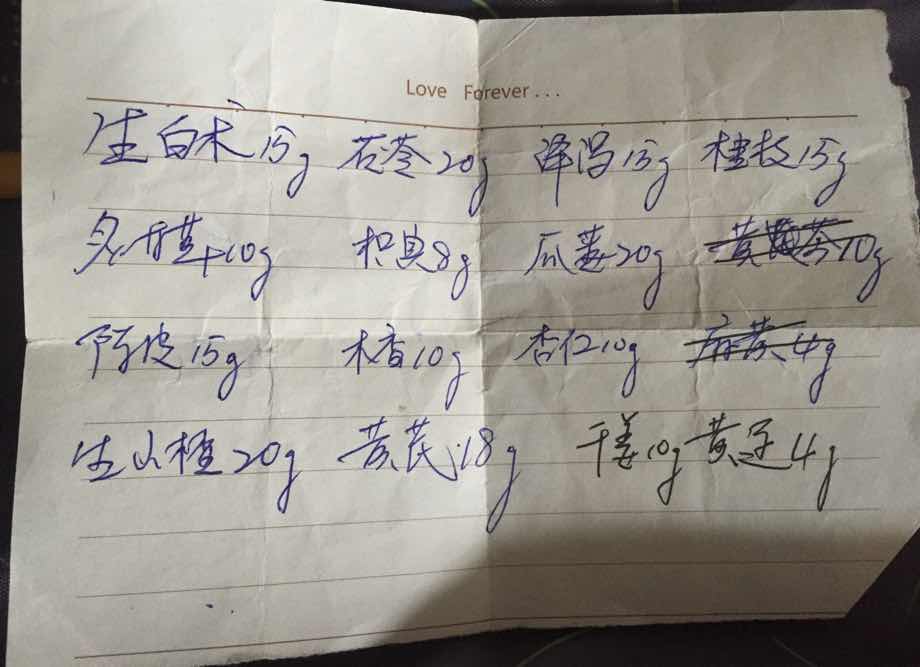 Love Forever...
生白术15g 茯苓20g 泽泻15g 桂枝15g
炙甘草10g 枳实8g 瓜蒌20g 10g
陈皮15g 木香10g 杏仁10g 麻黄4g
生山楂20g 黄芪18g 干姜10g 黄连4g